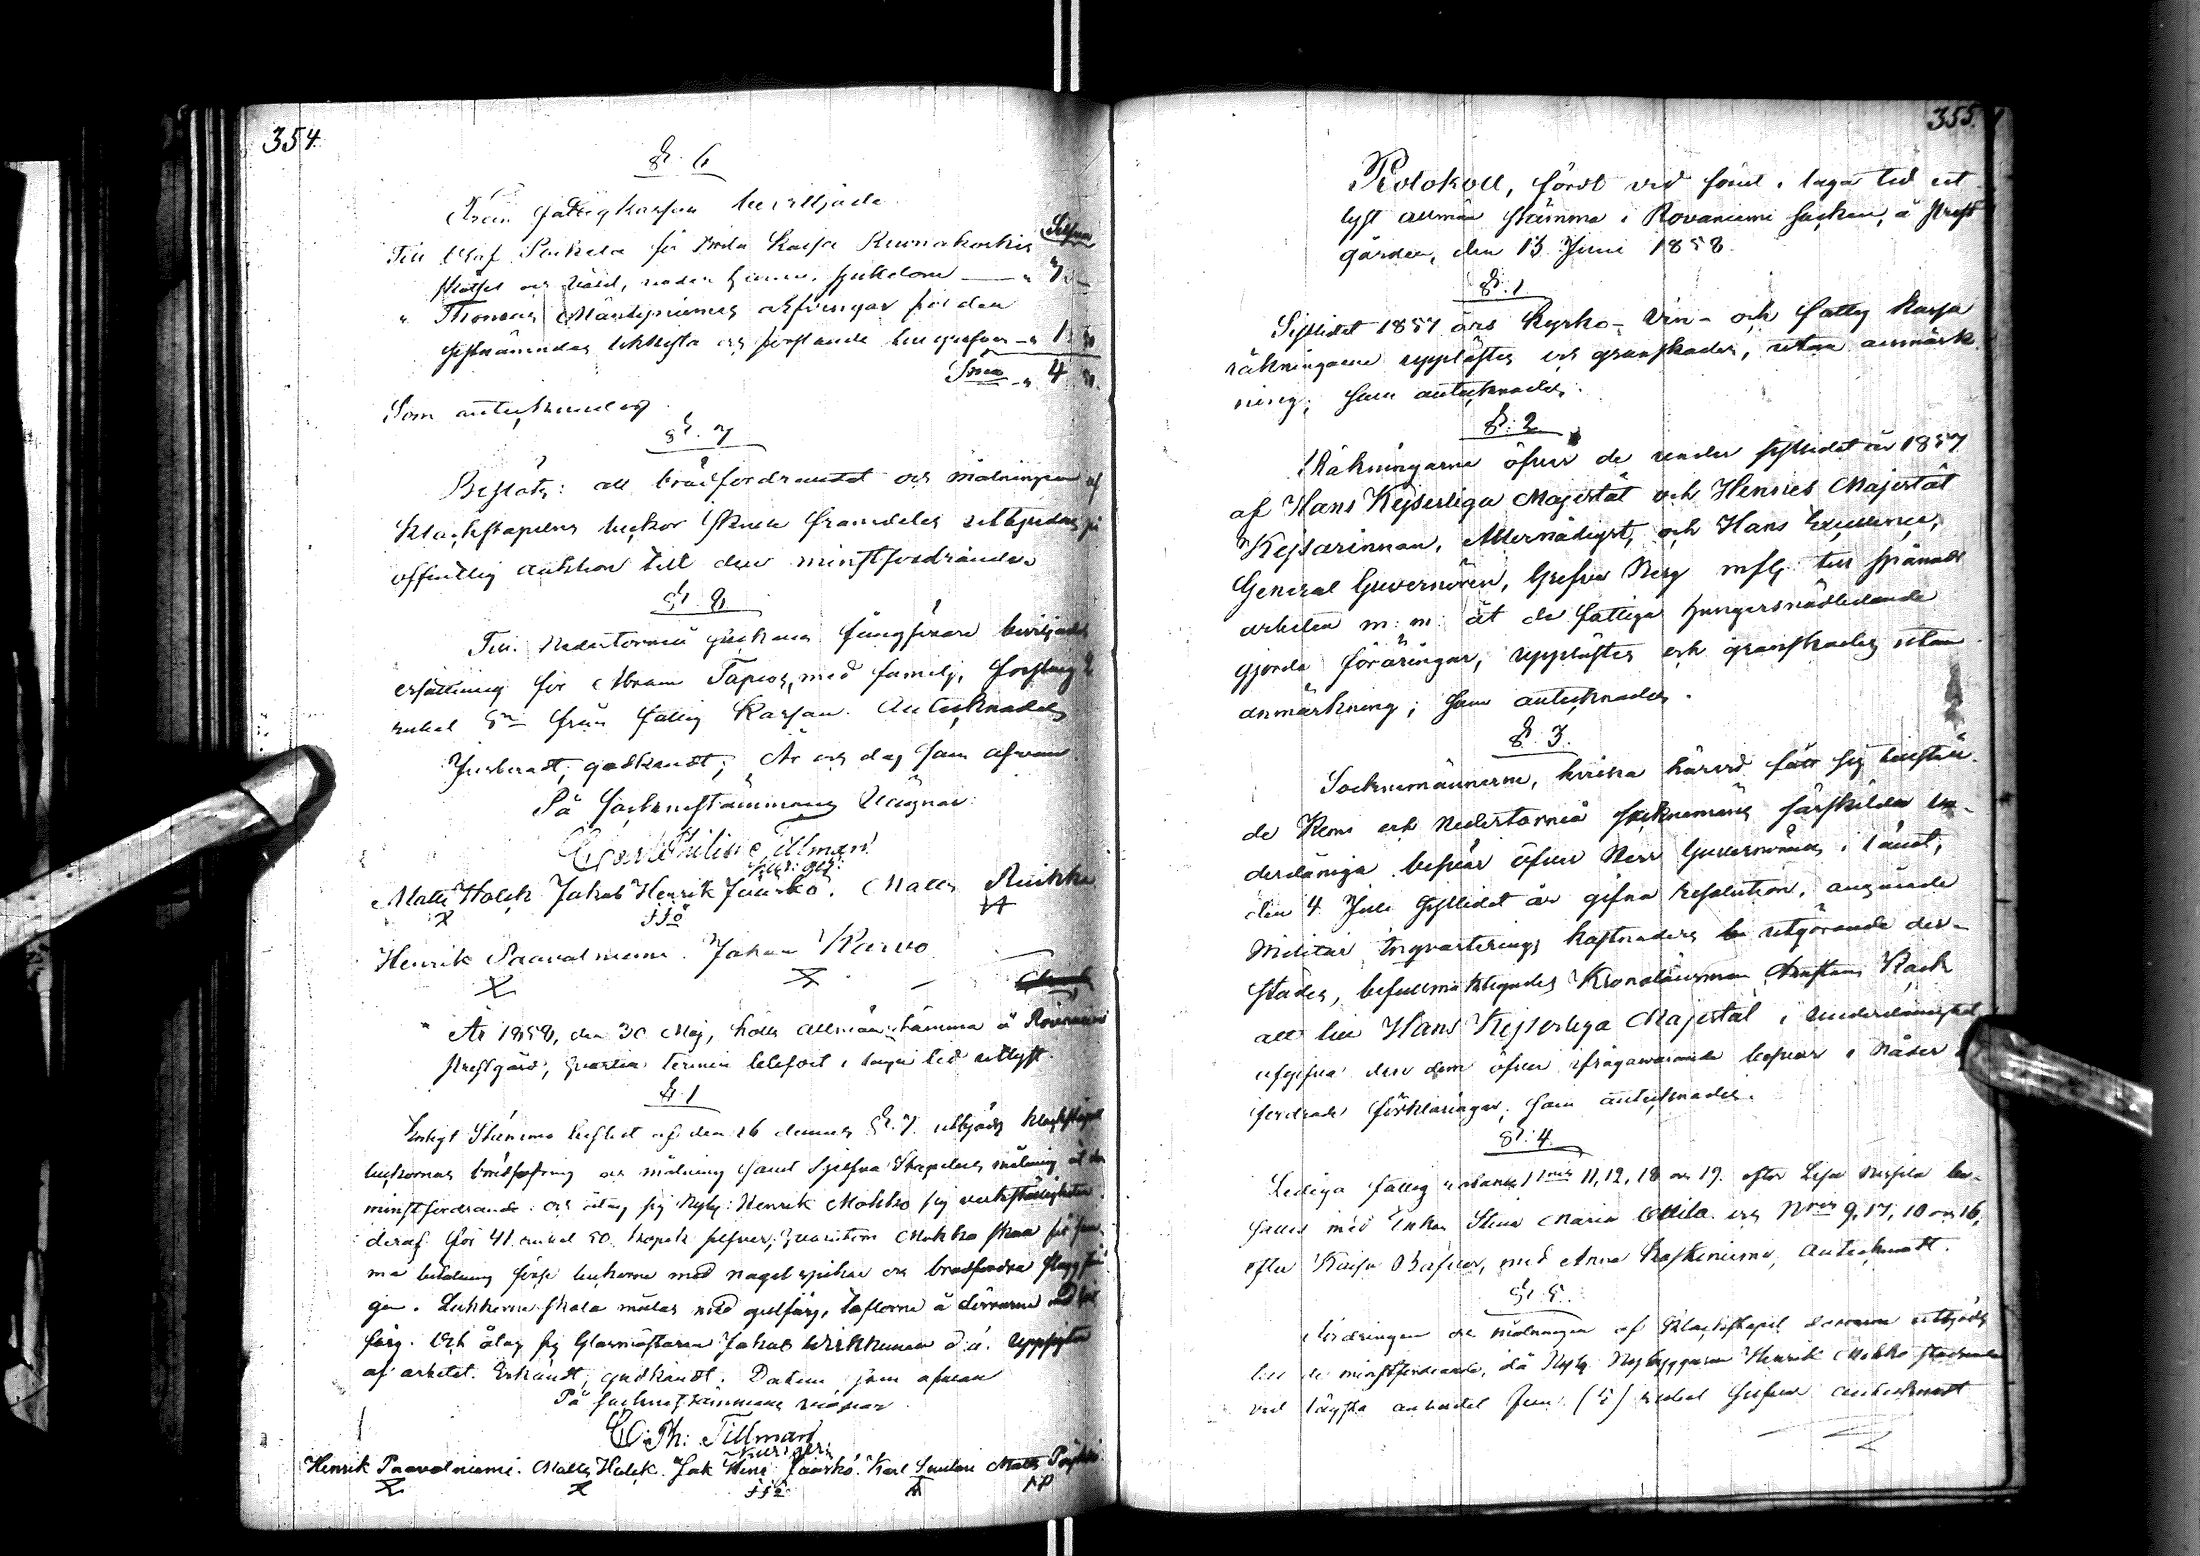 354.
§. 6
Från fattigkassan beviljade
Silfver
Till Olof
skötsel och vård, under hennes sjukdom — " 3. —
" Thomas Mäntyniemis arfvingar för den
sistnämndas likkista
Summa " 4 50.
Som antecknades
§. 7
Beslöts: att brädfordrandet och målningen af
Klockstapelns luckor skulle framdeles utbjudas på
offentlig auktion till den minstfordrande.
§. 8
Till Nedertorneå sockens fångförare beviljades
ersättning för Abram Tapios, med familj, forsling
rubel från fattig Kassan. Antecknades
Justeradt, godkändt; År och dag som ofvan
På Sockenstämmans vägnar:
Carl Philip Tillman
Matts Holck Jakob Henrik Jaarko. Matts Ruikka
Henrik Paavalniemi. Johan Karvo
År 1858, den 30 Maj, hölls allmän stämma å Rovaniemi
Prestgård, hvartill termin blefvit i laga tid utlyst.
§. 1
Enligt Stämmo beslut af den 16 dennes §. 7. utbjöds klockstapel
luckornas brädfodring och målning samt sjelfva Stapelns målning åt den
minstfordrande och åtog sig Nyb: Henrik Mokko sig verkställigheten
deraf för 41 rubel 50 kopek silfver; hvarutom Mokko skall
ma betalning förse luckorna med nagel spikar och brädfodra
gen. Luckorna skola målas med gulfärg, taflorna å dörrarne med
färg. Och åtog sig Glasmästaren Jakob Wirkkunen d.ä. uppsigten
af arbetet. Erkändt, godkändt. Datum som ofvan
På sockenstämmans vägnar
C. Ph: Tillman
Henrik Paavalniemi. Matts Holck. Jak Henr Jaarko. Karl
355.
Protokoll, fördt vid förut i laga tid ut-
lyst allmän stämma i Rovaniemi Socken, å Prest
gården, den 13 Juni 1858.
§. 1.
Sistlidet 1857 års Kyrko-, Vin- och fattig kassa
räkningarne upplästes och granskades, utan anmärk
ning; som antecknades.
§. 2
Räkningarne öfver de under sistlidet år 1857
af Hans Kejserliga Majestät och Hennes Majestät
Kejsarinnan, Allernådigst, och Hans Excellence,
General Guvernören, Grefve Berg mfl. till spånads
arbeten m: m: åt de fattiga hungersnödlidande
gjorda föräringar, upplästes och granskades utan
anmärkning; som antecknades.
§. 3.
Socknemännerne, hvilka härvid fått sig tillstäl-
de Kemi och Nedertorneå socknemäns särskilda un-
derdåniga besvär öfver Herr Guvernörens i länet,
den 4 Juli sistlidet år gifna resolution, angående
Militär Inqvarterings kostnaders utgörande der-
städes, befullmäktigades Kronolänsman Kack
att till Hans Kejserliga Majestät i underdånighet
afgifva den dem öfver ifrågavarande besvär i Nåder
fordrade förklaringar; som antecknades.
§. 4.
Lediga fattig rotarne Nris 11, 12, 18 och 19. efter Lisa
sattes med Enkan Stina Maria Ollila och Nris 9, 17, 10 och 16,
efter Kaisa med Anna Koskeniemi, antecknadt.
§. 5.
Fodringen och målningen af Klockstapel dörrarne utbjöds
till de minstfordrande, då Nyb: Nybyggaren Henrik Mokko stadnade
vid lägsta anbudet fem (5) rubel silfver antecknadt